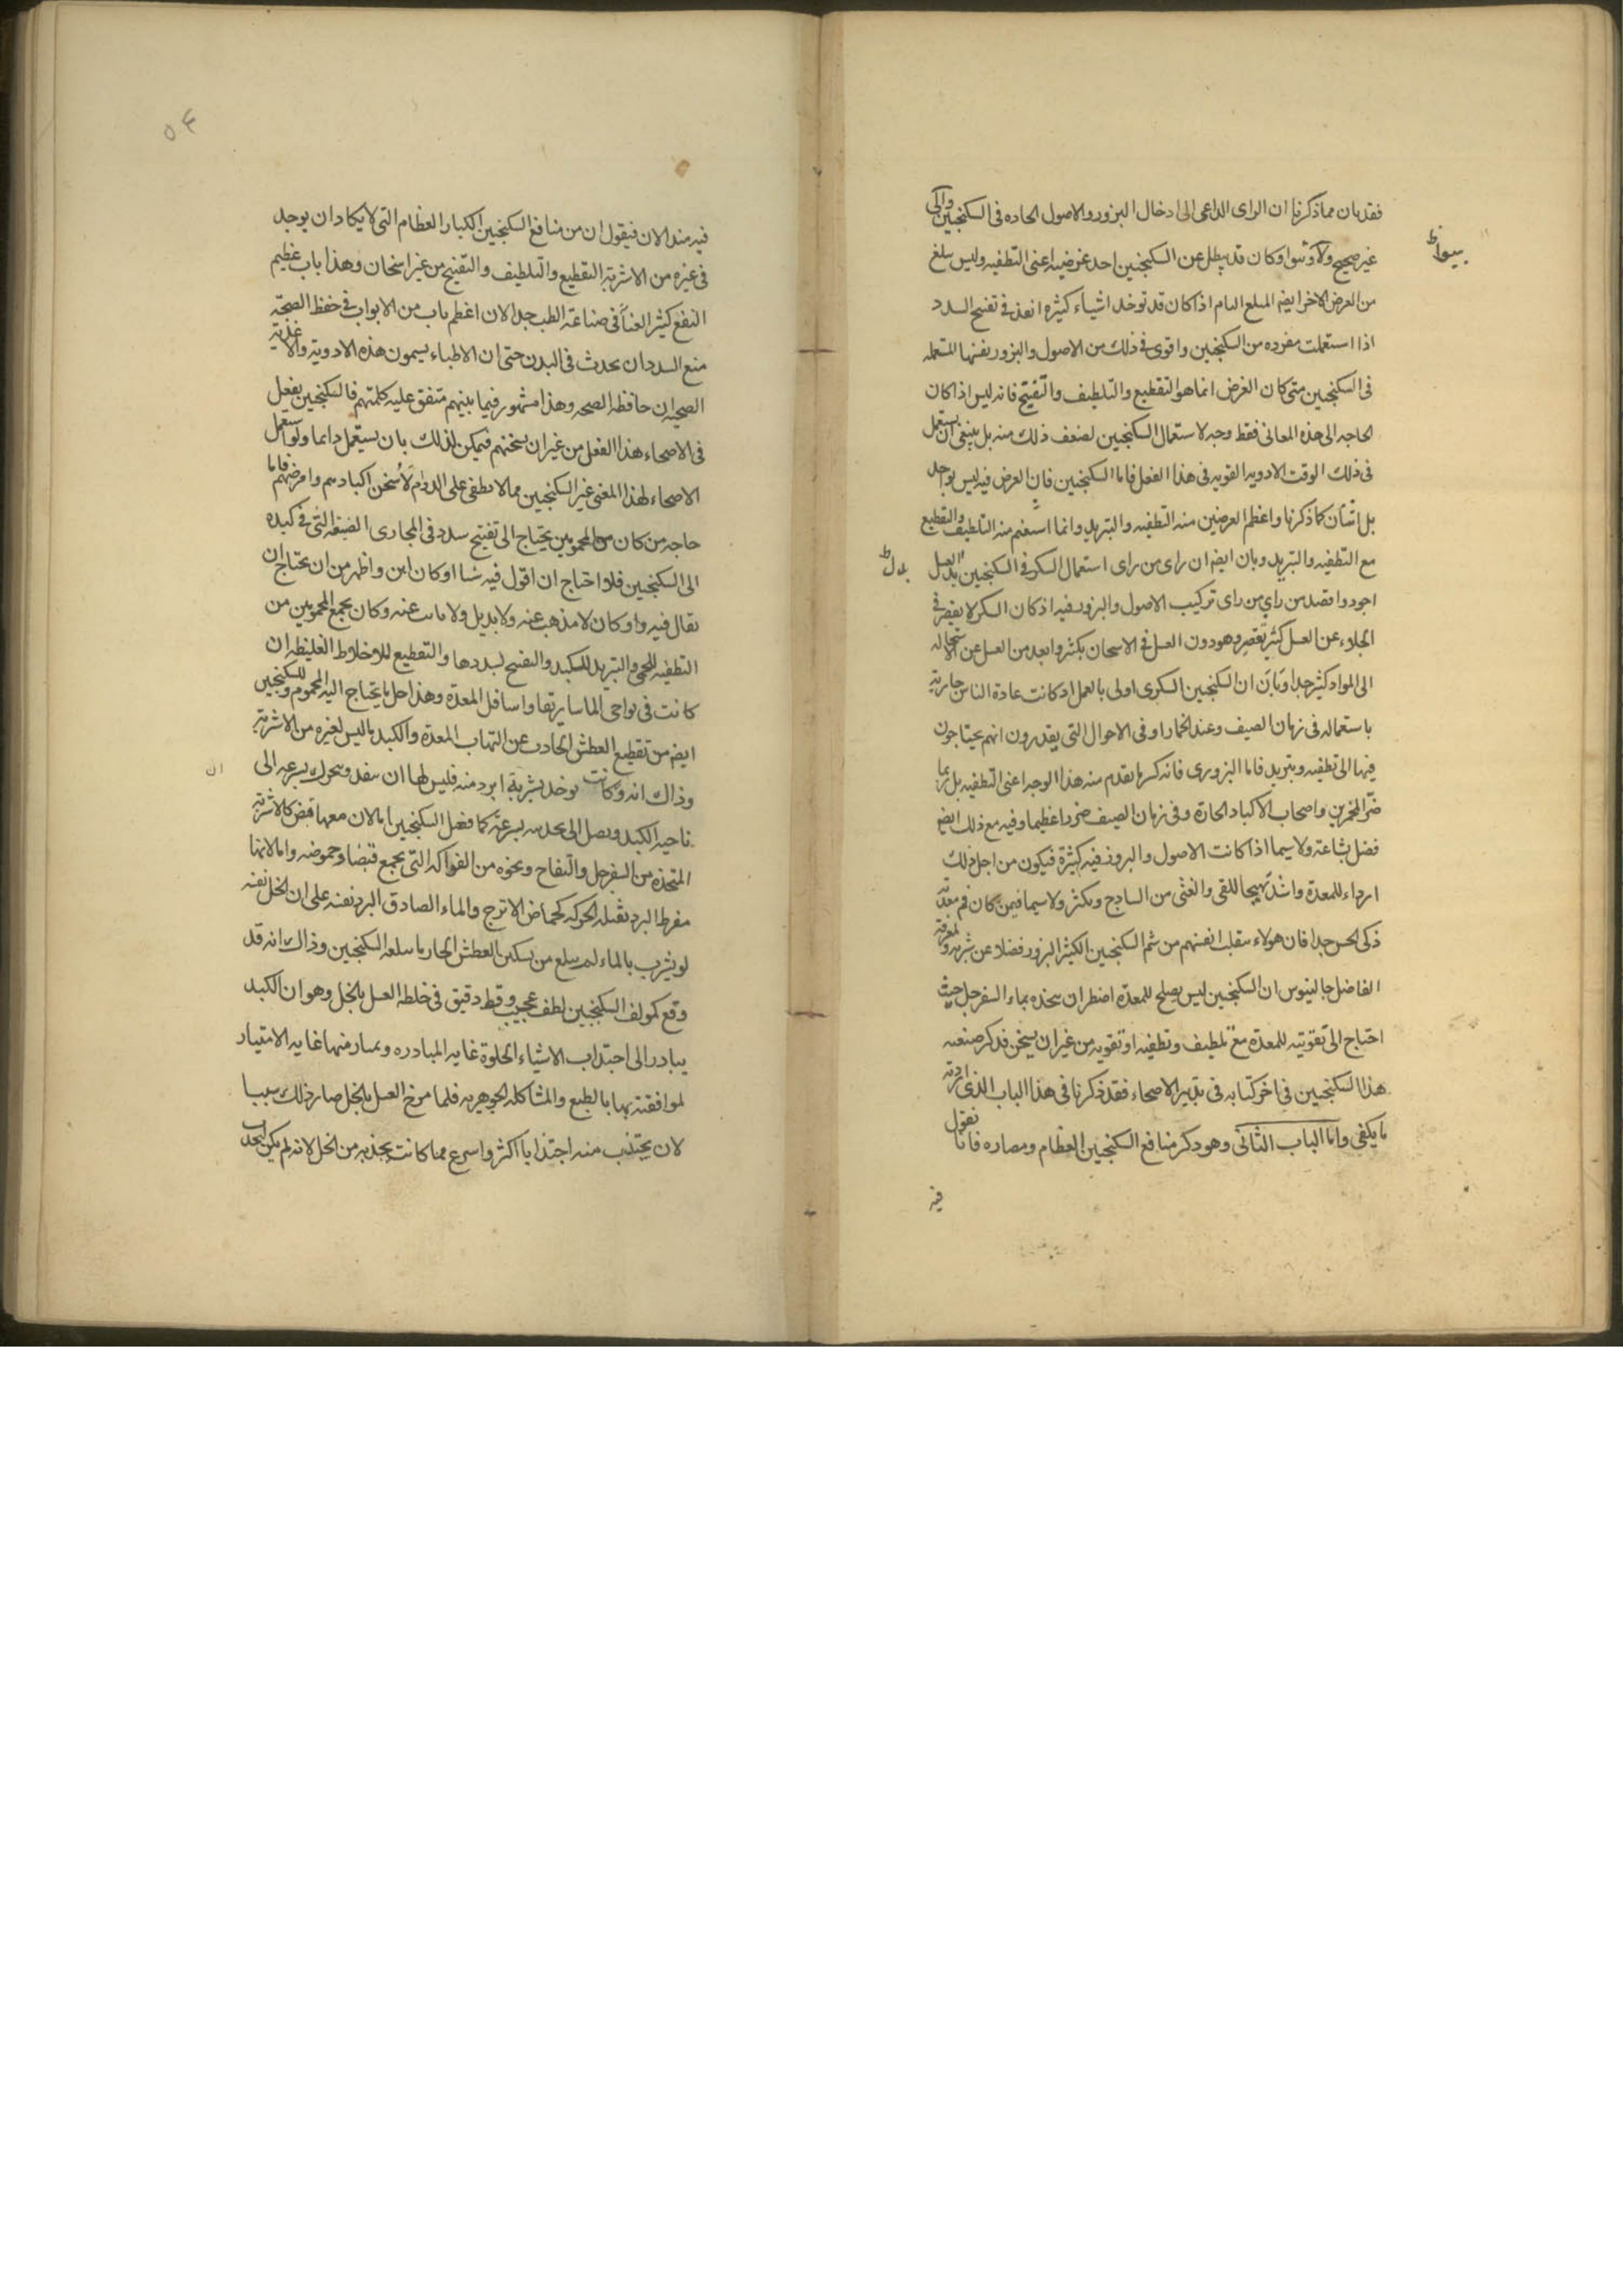 فقد بان مما ذكرنا ان الراى الداعى الى ادخال البزور والاصول الحاده فى السكنجبين راى
غير صحيح ولا وكان قد يبطل عن السكنجبين احد غرضيه اعنى التطفيه وليس يبلغ
من الغرض الاخر ايضا المبلغ التام اذا كان قد توخد اشياء كثيره انفذ فى تفتيح السدد
اذا استعملت مفرده من السكنجبين واقوى فى ذلك من الاصول والبزور نفسها المستعمله
فى السكنجبين متى كان الغرض انما هو التقطيع والتلطيف والتفتيح فانه ليس اذا كان
الحاجه الى هذه المعانى فقط وجه لاستعمال السكنجبين لضعف ذلك منه بل ينبغى ان يستعمل
فى ذلك الوقت الادويه القويه فى هذا الفعل فاما السكنجبين فان الغرض فيه ليس بواحد
بل اثنان كما ذكرنا واعظم الغرضين منه التطفيه والتبريد وانما استغنم منه التلطيف والتقطيع
مع التطفيه والتبريد وبان ايضا ان راى من راى استعمال السكر فى السكنجبين بدل العسل
اجود واقصد من راي من راى تركيب الاصول والبزور فيه اذ كان السكر لا يقصر فى
الجلاء عن العسل كثير تقصير وهو دون العسل فى الاسخان بكثير وابعد من العسل عن الاستحاله
الى المواد كثير جدا وبان ان السكنجبين السكرى اولى بالعمل اذ كانت عادة الناس جارية
باستعماله فى زمان الصيف وعند الخمار او فى الاحوال التى يقدرون انهم يحتاجون
فيها الى تطفيه وتبريد فاما البزورى فانه كما تقدم منه هذا الوجه اعنى التطفيه بل ربما
ضر المخمورين واصحاب الاكباد الحارة وفى زمان الصيف ضررا عظيما وفيه مع ذلك ايضا
فضل بشاعة ولا سيما اذا كانت الاصول والبزور فيه كثيرة فيكون من اجل ذلك
ارداء للمعدة واشد تهييجا للقى والغثى من الساذج وبكثير ولا سيما فيمن كان فم معدته
ذكى الحس جدا فان هولاء تنقلب انفسهم من شم السكنجبين الكثير البزور فضلا عن شربه ولمعرفة
الفاضل جالينوس ان السكنجبين ليس يصلح للمعدة اضطر ان يتخذه بماء السفرجل حيث
احتاج الى تقويته للمعدة مع تلطيف وتطفيه او تقويه من غير ان يسخن فذكر صنعة
هذا السكنجبين فى اخر كتابه فى تدبير الاصحاء فقد ذكرنا فى هذا الباب الذى اردته
ما يكفى واما الباب الثانى وهو ذكر منافع السكنجبين العظام ومضاره فانا نقول
فيه
فيه منذ الان فيقول ان من منافع السكنجبين الكبار العظام التى لا يكاد ان يوجد
فى غيره من الاشربة التقطيع والتلطيف والتفتيح من غير اسخان وهذا باب عظيم
النفع كثير الغناء فى صناعة الطب جدا لان اعظم باب من الابواب فى حفظ الصحة
منع السدد ان يحدث فى البدن حتى ان الاطباء يسمون هذه الادوية والاغذية
الصحيه ان حافظه الصحه وهذا مشهور فيما بينهم متفق عليه كلمتهم فالسكنجبين يفعل
فى الاصحاء هذا الفعل من غير ان يسخنهم فيمكن لذلك بان يستعمل دايما ولو استعمل
الاصحاء لهذا المعنى غير السكنجبين مما لا يطفى على الدوام لأسخن اكبادهم وامرضهم فاما
حاجه من كان من المحمومين يحتاج الى تفتيح سدد فى المجارى الضيقه التى فى كبده
الى السكنجبين فلو احتاج ان اقول فيه شيا او كان ابين واظهر من ان يحتاج ان
يقال فيه واو كان لا مذهب عنه ولا بديل ولا عنه وكان يجمع المحمومين من
التطفيه للحمى والتبريد للكبد والتفتيح لسددها والتقطيع للاخلاط الغليظه ان
كانت فى نواحى الماساريقا واسافل المعدة وهذا اجل ما يحتاج اليه المحموم وللسكنجبين
ايضا من تقطيع العطش الحادث عن التهاب المعدة والكبد ما ليس لغيره من الاشربة
وذاك انه وكانت توخد بشربة ابرد منه فليس لها ان تنفذ وتتحرك بسرعه الى
ناحية الكبد ويصل الى محدبه بسرعة كما يفعل السكنجبين اما لان معها قبض كالاشربة
المتخذه من السفرجل والتفاح ونحوه من الفواكه التى يجمع قبضا وحموضه واما لانها
مفرط البرد ثقيله الحركه كحماض الاترج والماء الصادق البرد نفسه على ان الخل نفسه
لو يشرب بالماء لم يبلغ من تسكين العطش الحار ما يبلغه السكنجبين وذاك انه قد
وقع لمولف السكنجبين لطف عجيب وقط دقيق فى خلطه العسل بالخل وهو ان الكبد
يبادر الى اجتذاب الاشياء الحلوة غايه المبادره ويمتار منها غايه الامتيار
لموافقته بها بالطبع والمشاكله الجوهريه فلما مزج العسل بالخل صار ذلك سببا
لان يجتذب منه اجتذابا اكثر واسرع مما كانت يجذبه من الخل لانه لم يكن